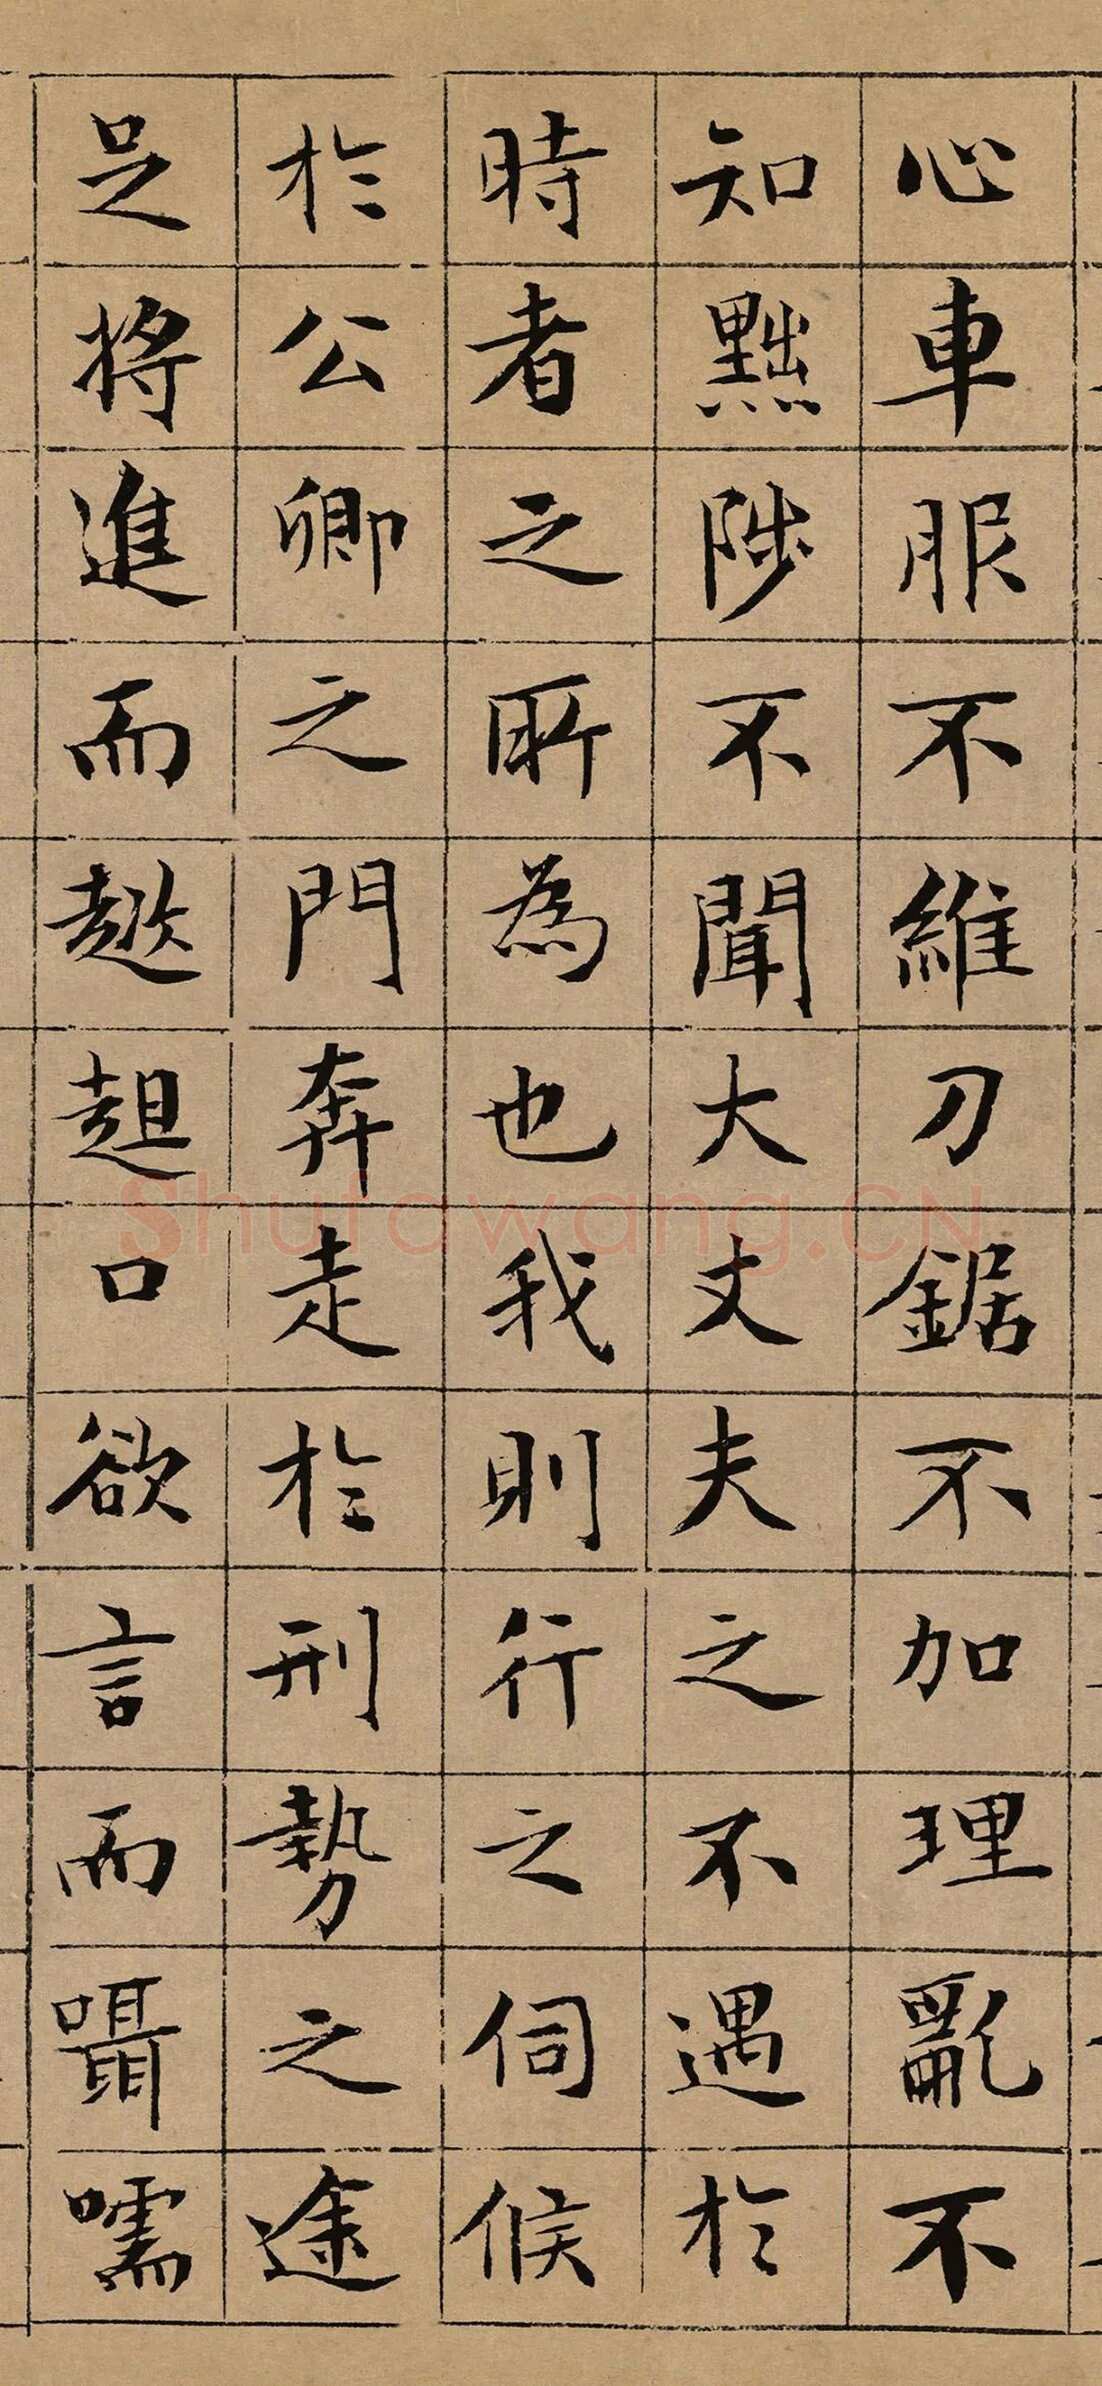 心車服不維刀鋸不加理亂不
知黜陟不聞大丈夫之不遇於
時者之所為也我則行之伺候
於公卿之門奔走於刑勢之途
足將進而趑趄口欲言而囁嚅
Shufawang.CN